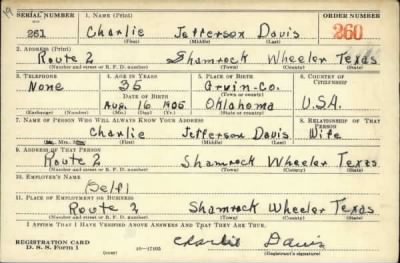 19
SERIAL NUMBER 1. NAME (Print) ORDER NUMBER
261 Charlie Jefferson Davis 260
(First) (Middle) (Last)
2. ADDRESS (Print)
Route 2 Shamrock Wheeler Texas
(Number and street or R. F. D. number) (Town) (County) (State)
3. TELEPHONE 4. AGE IN YEARS 5. PLACE OF BIRTH 6. COUNTRY OF CITIZENSHIP
None 35 Grvin-Co.
DATE OF BIRTH
Aug. 16 1905 Oklahoma U.S.A.
(Exchange) (Number) (Mo.) (Day) (Yr.) (State or country)
7. NAME OF PERSON WHO WILL ALWAYS KNOW YOUR ADDRESS 8. RELATIONSHIP OF THAT PERSON
Charlie Jefferson Davis Wife
(First) (Middle) (Last)
9. ADDRESS OF THAT PERSON
Route 2 Shamrock Wheeler Texas
(Number and street or R. F. D. number) (Town) (County) (State)
10. EMPLOYER'S NAME
(Self)
11. PLACE OF EMPLOYMENT OR BUSINESS
Route 2 Shamrock Wheeler Texas
(Number and street or R. F. D. number) (Town) (County) (State)
I AFFIRM THAT I HAVE VERIFIED ABOVE ANSWERS AND THAT THEY ARE TRUE.
REGISTRATION CARD
D. S. S. Form 1 (over) 16-17105 Charlie Davis
(Registrant's signature)